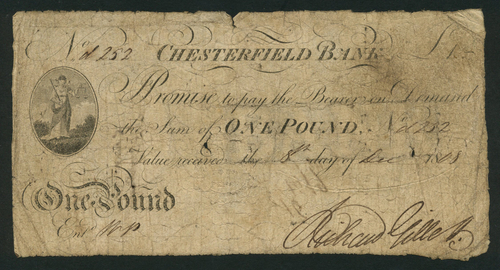 No. d 252 CHESTERFIELD BANK £1
I Promise to pay the Bearer on Demand
the Sum of ONE POUND. No. d 252
Value received the 8th day of Dec 1808
One Pound
Richard Gillett